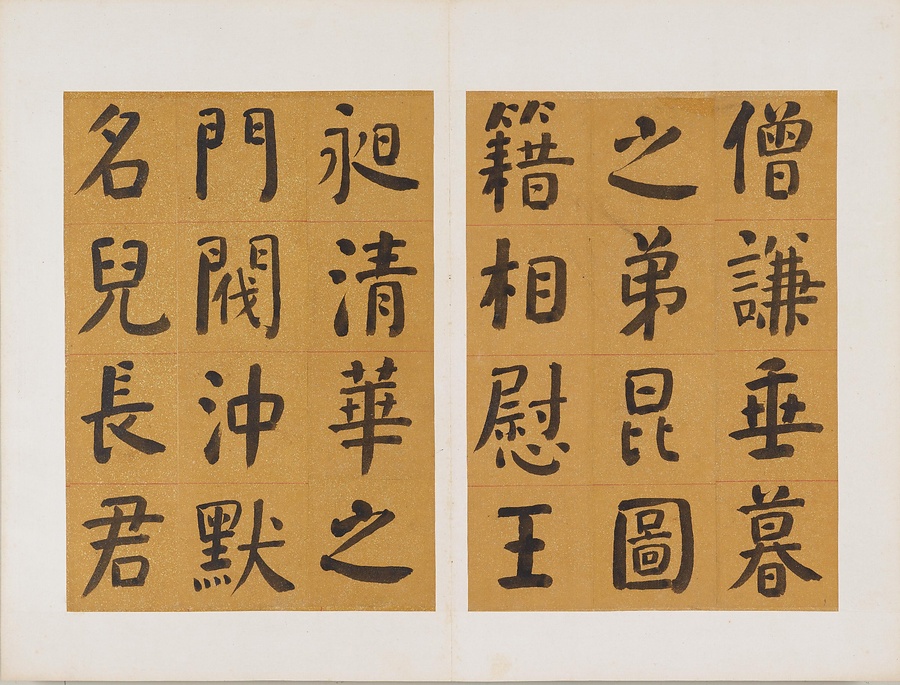 僧謙垂暮
之弟昆圖
籍相慰王
昶清華之
門閥沖默
名兒長君